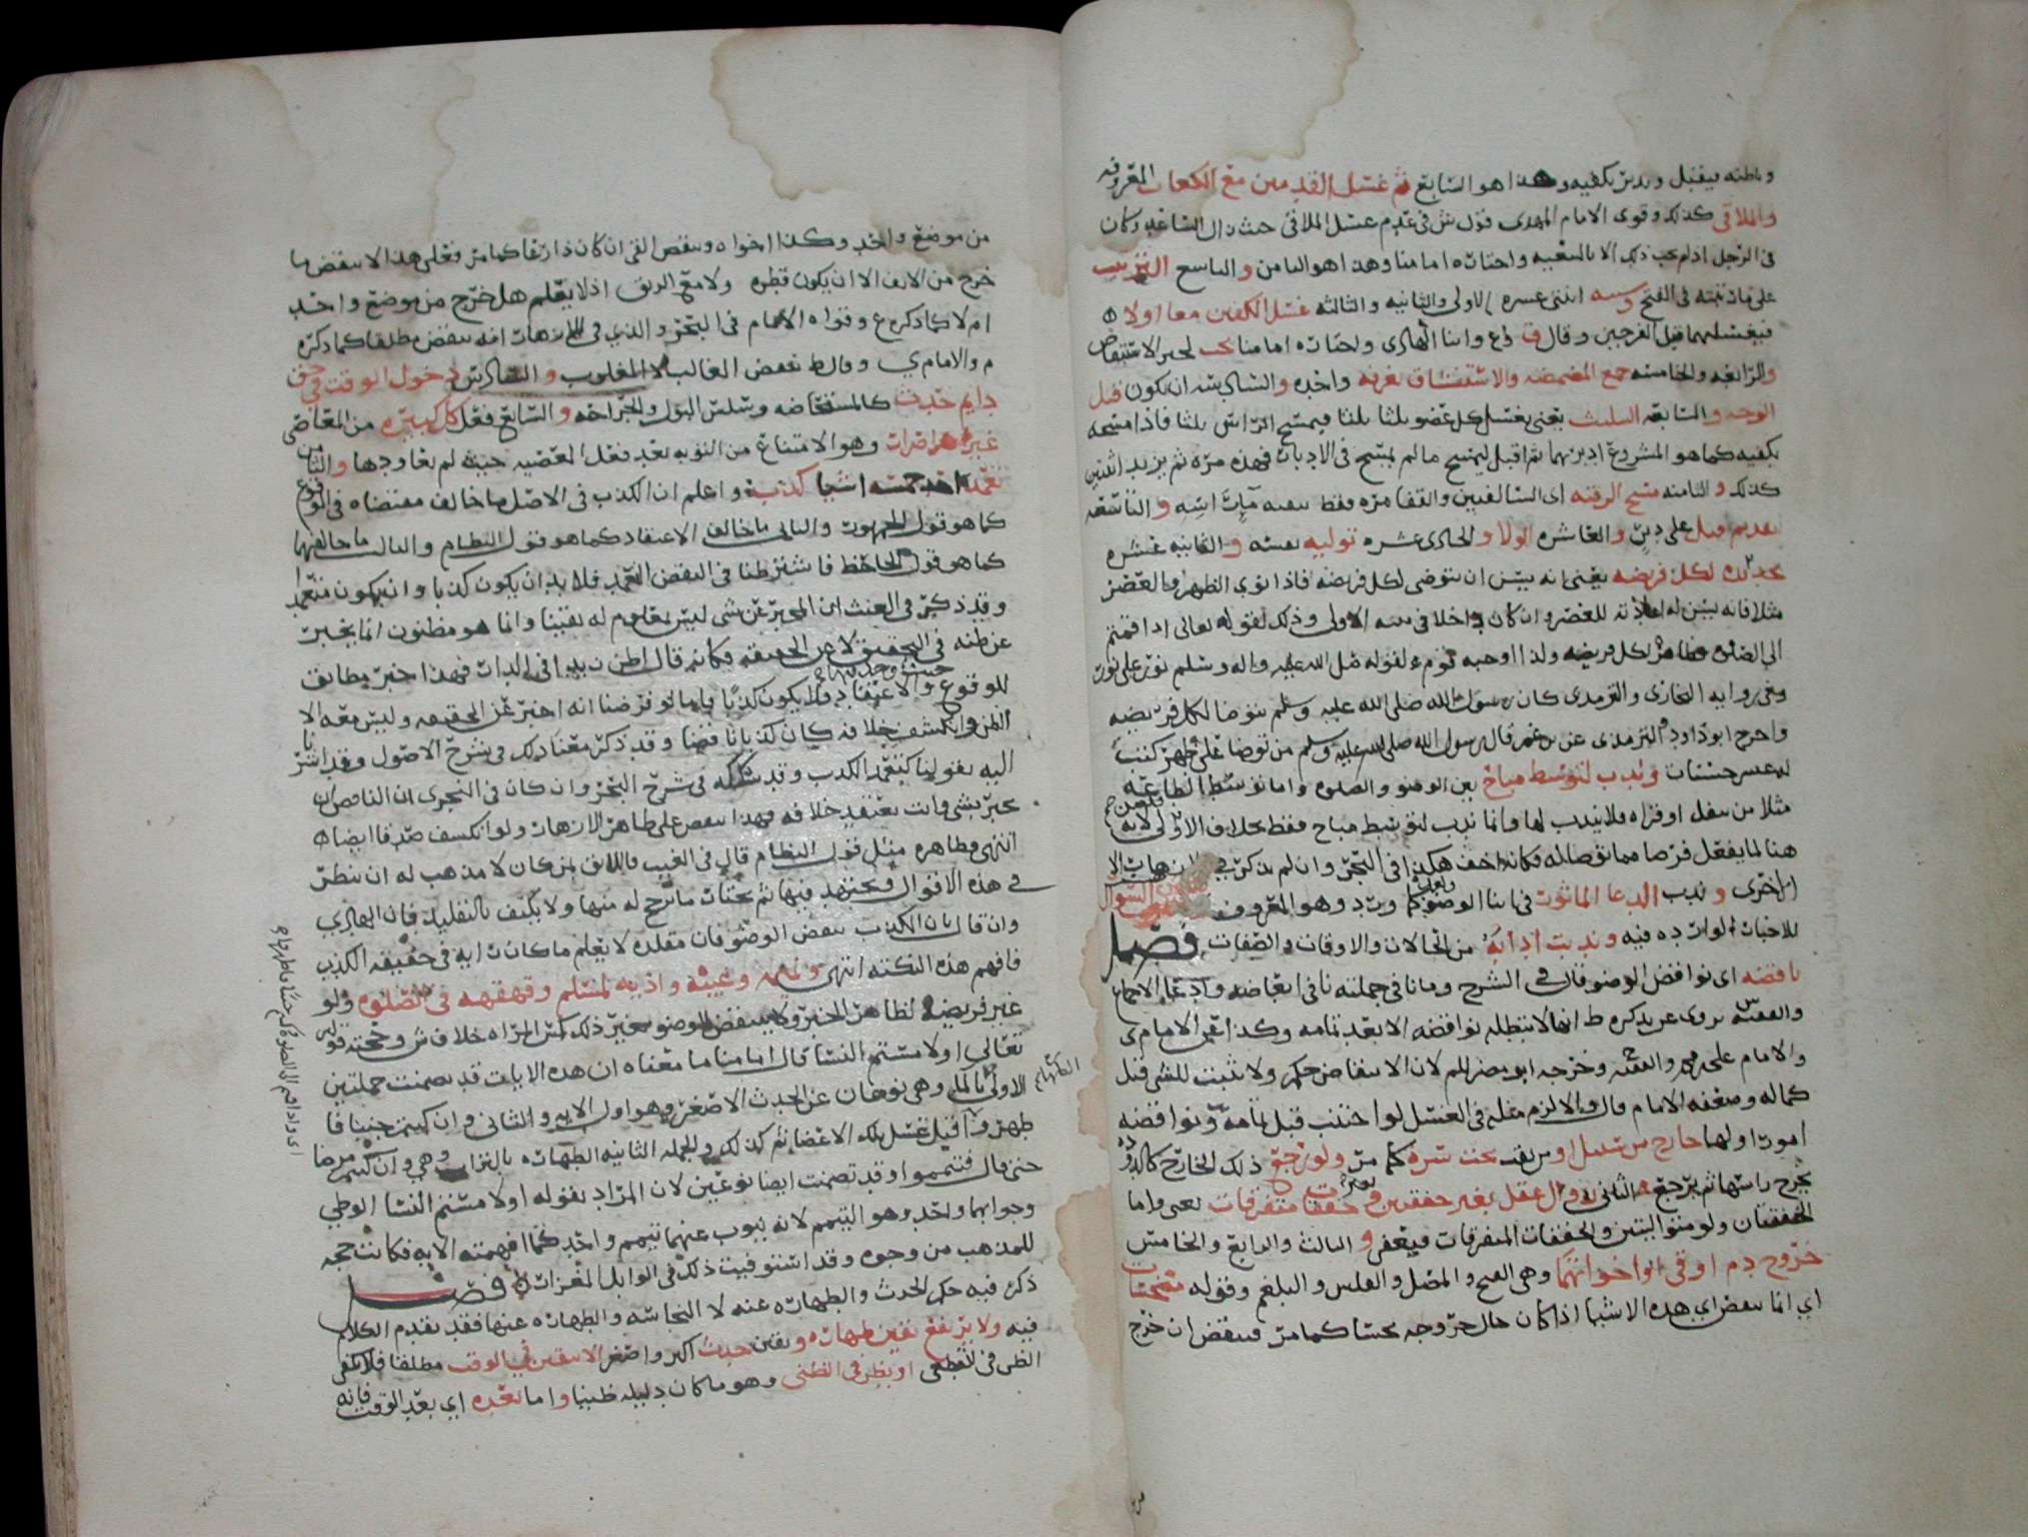 وباطنه فيقبل ويدبر بكفيه وهذا هو السابع ثم غسل القدمين مع الكعاب المعروفه
والملاقي كذلك وقوى الامام المهدي قول ش في عدم غسل الملاقي حيث زال الساعد وكان
في الرجل اذ لم يجب ذلك الا بالتبعيه واختاره امامنا وهذا هو الثامن والتاسع الترتيب
على ما رتبته في الفتح وسننه اثنتي عشره الاولى والثانيه والثالثه غسل الكفين معا اولا
فيغسلهما قبل الفرجين وقال ق وع وابنا الهادي واختاره امامنا يجب لخبر الاستيقاض
والرابعه والخامسه جمع المضمضه والاستنشاق بغرفه واحده والسادسه ان يكون قبل
الوجه والسابعه التثليث يعني يغسل كل عضو ثلثا ثلثا فيمسح الراس ثلثا فاذا مسحه
بكفيه كما هو المشروع ادبر بهما ثم اقبل ليمسح ما لم يمسح في الادبار فهذه مره ثم يزيد اثنتين
كذلك والثامنه مسح الرقبه اي السالفين والقفا مره فقط ببقيه ماء راسه والتاسعه
تقديم قبل على دبر والعاشره الولا والحادي عشره توليه بنفسه والثانيه عشره
تجديده لكل فريضه يعني انه يسن ان يتوضى لكل فريضه فاذا نوى الظهر والعصر
مثلا فانه يسن له اعادته للعصر وان كان داخلا في نيته الاولى وذلك لقوله تعالى اذا قمتم
الى الصلوه فظاهره لكل فريضه ولذا اوجبه قوم ولقوله صلى الله عليه واله وسلم نور على نور
وفي روايه البخاري والترمذي كان رسول الله صلى الله عليه وسلم يتوضا لكل فريضه
واخرج ابو داود والترمذي عن بن عمر قال رسول الله صلى الله عليه وسلم من توضا على طهر كتبت
له عشر حسنات وندب لتوسط مباح بين الوضو والصلوه واما توسط الطاعه
مثلا من نفل او قراه فلا يندب لها وانما ندب لتوسط مباح فقط بخلاف الاولى لانه
هنا لما يفعل فرضا مما توضا له فكانه اخف هكذا في البحر وان لم يذكره في الازهار الا
الاخرى وندب الدعا الماثور في اثنا الوضو وبعده كما ورد وهو المعروف
للاخبار الوارده فيه وندبت ادابه من الحالات والاوقات والصفات فصل
ناقضه اي نواقض الوضو قال في الشرح
والامام علي محمد والفقيه وخرجه ابو مضر للم لان الانتقاض حكم ولا يثبت للشي قبل
كماله وضعفه الامام قال والا لزم مثله في الغسل لو اجنب قبل تمامه ونواقضه
امور اولها خارج من سبيل او من ثقب تحت سره كما مر ولو رجع ذلك الخارج كالدوده
يخرج راسها ثم يرجع الثاني زوال عقل بغير خفقتين وخفقات متفرقات يعني واما
الخفقتان ولو متواليتين والخفقات المتفرقات فيعفى والثالث والرابع والخامس
خروج دم او قي او اخواتهما وهي القيح والمصل والقلس والبلغم وقوله نجسات
اي انما ينقض اي هذه الاشيا اذا كان حال خروجه نجسا كما مر فينقض ان خرج
من موضع واحد وكذا اخواه وينقض القي ان كان ذارعا كما مر فعلى هذا لا ينقض ما
خرج من الانف الا ان يكون قطره ولا مع الريق اذ لا يعلم هل خرج من موضع واحد
ام لا كما ذكره ع وقواه الامام في البحر والذي في الازهار انه ينقض مطلقا كما ذكره
م والامام ي وقال ط ينقض الغالب لا المغلوب والسادس دخول الوقت في حق
دايم حدث كالمستحاضه وسلس البول والجراحه والسابع فعل كل كبيره من المعاصي
غير اصرار وهو الامتناع من التوبه بعد فعل المعصيه حيث لم يعاودها والثامن
تعمد احد خمسه اشيا كذب واعلم ان الكذب في الاصل ما خالف مقتضاه في الوقوع
كما هو قول الجمهور والثاني ما خالف الاعتقاد كما هو قول النظام والثالث ما خالفهما
كما هو قول الجاحظ فاشترطنا في النقض التعمد فلا بد ان يكون كذبا وان يكون متعمدا
وقد ذكر في الغيث ان المخبر عن شي ليس معلوم له يقينا وانما هو مظنون انما يخبر
عن ظنه في التحقيق لا عن الحقيقه فكانه قال اظن زيدا في الدار فهذا خبر مطابق
للوقوع والاعتقاد فلا يكون كذبا واما لو فرضنا انه اخبر عن الحقيقه وليس معه الا
الظن وانكشف خلافه كان كذبا ناقضا وقد ذكر معنا ذلك في شرح الاصول وقد اشرنا
اليه بقولنا كتعمد الكذب وقد شككه في شرح البحر وان كان في النجري ان الناقض ان
يخبر بشي وانت تعتقد خلافه فهذا ينقض على ظاهر الازهار ولو انكشف صدقا ايضا
انتهى وظاهره مثل قول النظام قال في الغيث واللايق بمن كان لا مذهب له ان ينظر
في هذه الاقوال ويجتهد فيها ثم يختار ما ترجح له منها ولا يكتف بالتقليد فان الهادي
وان قال بان الكذب ينقض الوضو فان مقلده لا يعلم ما كان رايه في حقيقه الكذب
فافهم هذه النكته انتهى ونميمه وغيبه واذيه لمسلم وقهقهه في الصلوه ولو
غير فريضه لظاهر الخبر ولا ينقض الوضو بغير ذلك كمس المراه خلاف ش وحجته قوله
تعالى او لامستم النسا قال امامنا ما معناه ان هذه الايات قد تضمنت جملتين
الاولى بالماء وهي نوعان عن الحدث الاصغر وهو اول الايه والثاني وان كنتم جنبا فا
طهروا اي قبل غسل تلك الاعضا ثم كذلك والجمله الثانيه الطهاره بالتراب وهي وان كنتم مرضا
حتى قال فتيمموا وقد تضمنت ايضا نوعين لان المراد بقوله او لامستم النسا الوطي
وجوابهما واحد وهو التيمم لانه ينوب عنهما تيمم واحد كما افهمته الايه فكانت حجه
للمذهب من وجوه وقد استوفيت ذلك في الوابل المغزار فصل
ذكر فيه حكم الحدث والطهاره عنه لا النجاسه والطهاره عنها فقد تقدم الكلام
فيه ولا يرتفع يقين طهاره ويقين حدث اكبر واصغر الا بيقين في الوقت مطلقا فلا يكفي
الظن في القطعي او بظن في الظني وهو ما كان دليله ظنيا واما بعده اي بعد الوقت فانه